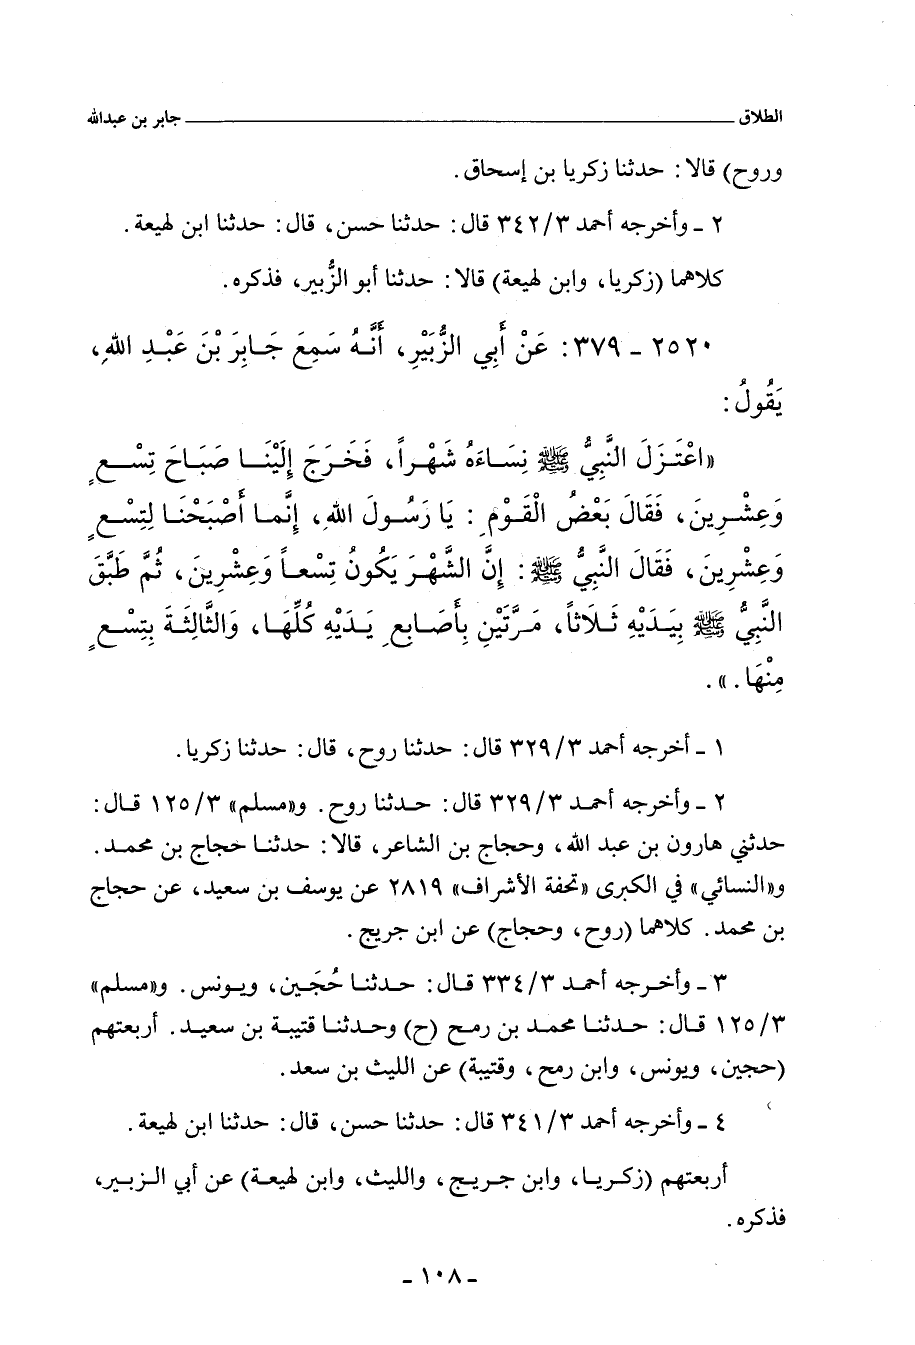 الطلاق ــــــــــــــــــــــــــــــــ جابر بن عبدالله
وروح) قالا: حدثنا زكريا بن إسحاق.
٢ ـ وأخرجه أحمد ٣٤٢/٣ قال: حدثنا حسن، قال: حدثنا ابن لهيعة.
كلاهما (زكريا، وابن لهيعة) قالا: حدثنا أبو الزُّبير، فذكره.
٢٥٢٠ ـ ٣٧٩: عَنْ أَبِي الزُّبَيْرِ، أَنَّهُ سَمِعَ جَابِرَ بْنَ عَبْدِ اللهِ،
يَقُولُ:
«اعْتَزَلَ النَّبِيُّ ﷺ نِسَاءَهُ شَهْراً، فَخَرَجَ إِلَيْنَا صَبَاحَ تِسْعٍ
وَعِشْرِينَ، فَقَالَ بَعْضُ الْقَوْمِ: يَا رَسُولَ اللهِ، إِنَّما أَصْبَحْنَا لِتِسْعٍ
وَعِشْرِينَ، فَقَالَ النَّبِيُّ ﷺ: إِنَّ الشَّهْرَ يَكُونُ تِسْعاً وَعِشْرِينَ، ثُمَّ طَبَّقَ
النَّبِيُّ ﷺ بِيَدَيْهِ ثَلَاثاً، مَرَّتَيْنِ بِأَصَابِعِ يَدَيْهِ كُلِّهَا، وَالثَّالِثَةَ بِتِسْعٍ
مِنْهَا.».
١ ـ أخرجه أحمد ٣٢٩/٣ قال: حدثنا روح، قال: حدثنا زكريا.
٢ ـ وأخرجه أحمد ٣٢٩/٣ قال: حدثنا روح. و«مسلم» ١٢٥/٣ قال:
حدثني هارون بن عبد الله، وحجاج بن الشاعر، قالا: حدثنا حجاج بن محمد.
و«النسائي» في الكبرى «تحفة الأشراف» ٢٨١٩ عن يوسف بن سعيد، عن حجاج
بن محمد. كلاهما (روح، وحجاج) عن ابن جريج.
٣ ـ وأخرجه أحمد ٣٣٤/٣ قال: حدثنا حُجَين، ويونس. و«مسلم»
١٢٥/٣ قال: حدثنا محمد بن رمح (ح) وحدثنا قتيبة بن سعيد. أربعتهم
(حجين، ويونس، وابن رمح، وقتيبة) عن الليث بن سعد.
٤ ـ وأخرجه أحمد ٣٤١/٣ قال: حدثنا حسن، قال: حدثنا ابن لهيعة.
أربعتهم (زكريا، وابن جريج، والليث، وابن لهيعة) عن أبي الزبير،
فذكره.
ـ ١٠٨ ـ